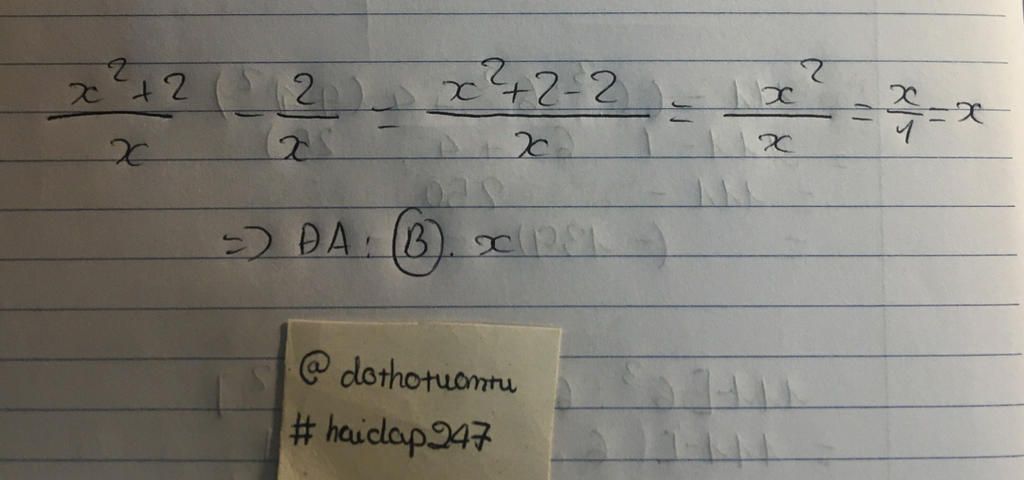 x²+2/x - 2/x = x²+2-2/x = x²/x = x/1 = x
=> ĐA: B. x
@ dothotuomtu
# haidap247